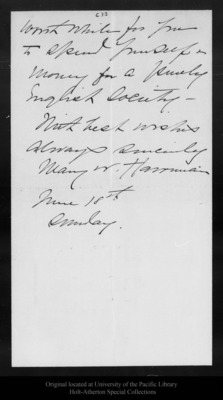 633
worth while for you
to spend yourself or
money for a purely
English Society—
With best wishes
always sincerely
Mary W. Harriman
June 18th
Sunday.
Original located at University of the Pacific Library
Holt-Atherton Special Collections